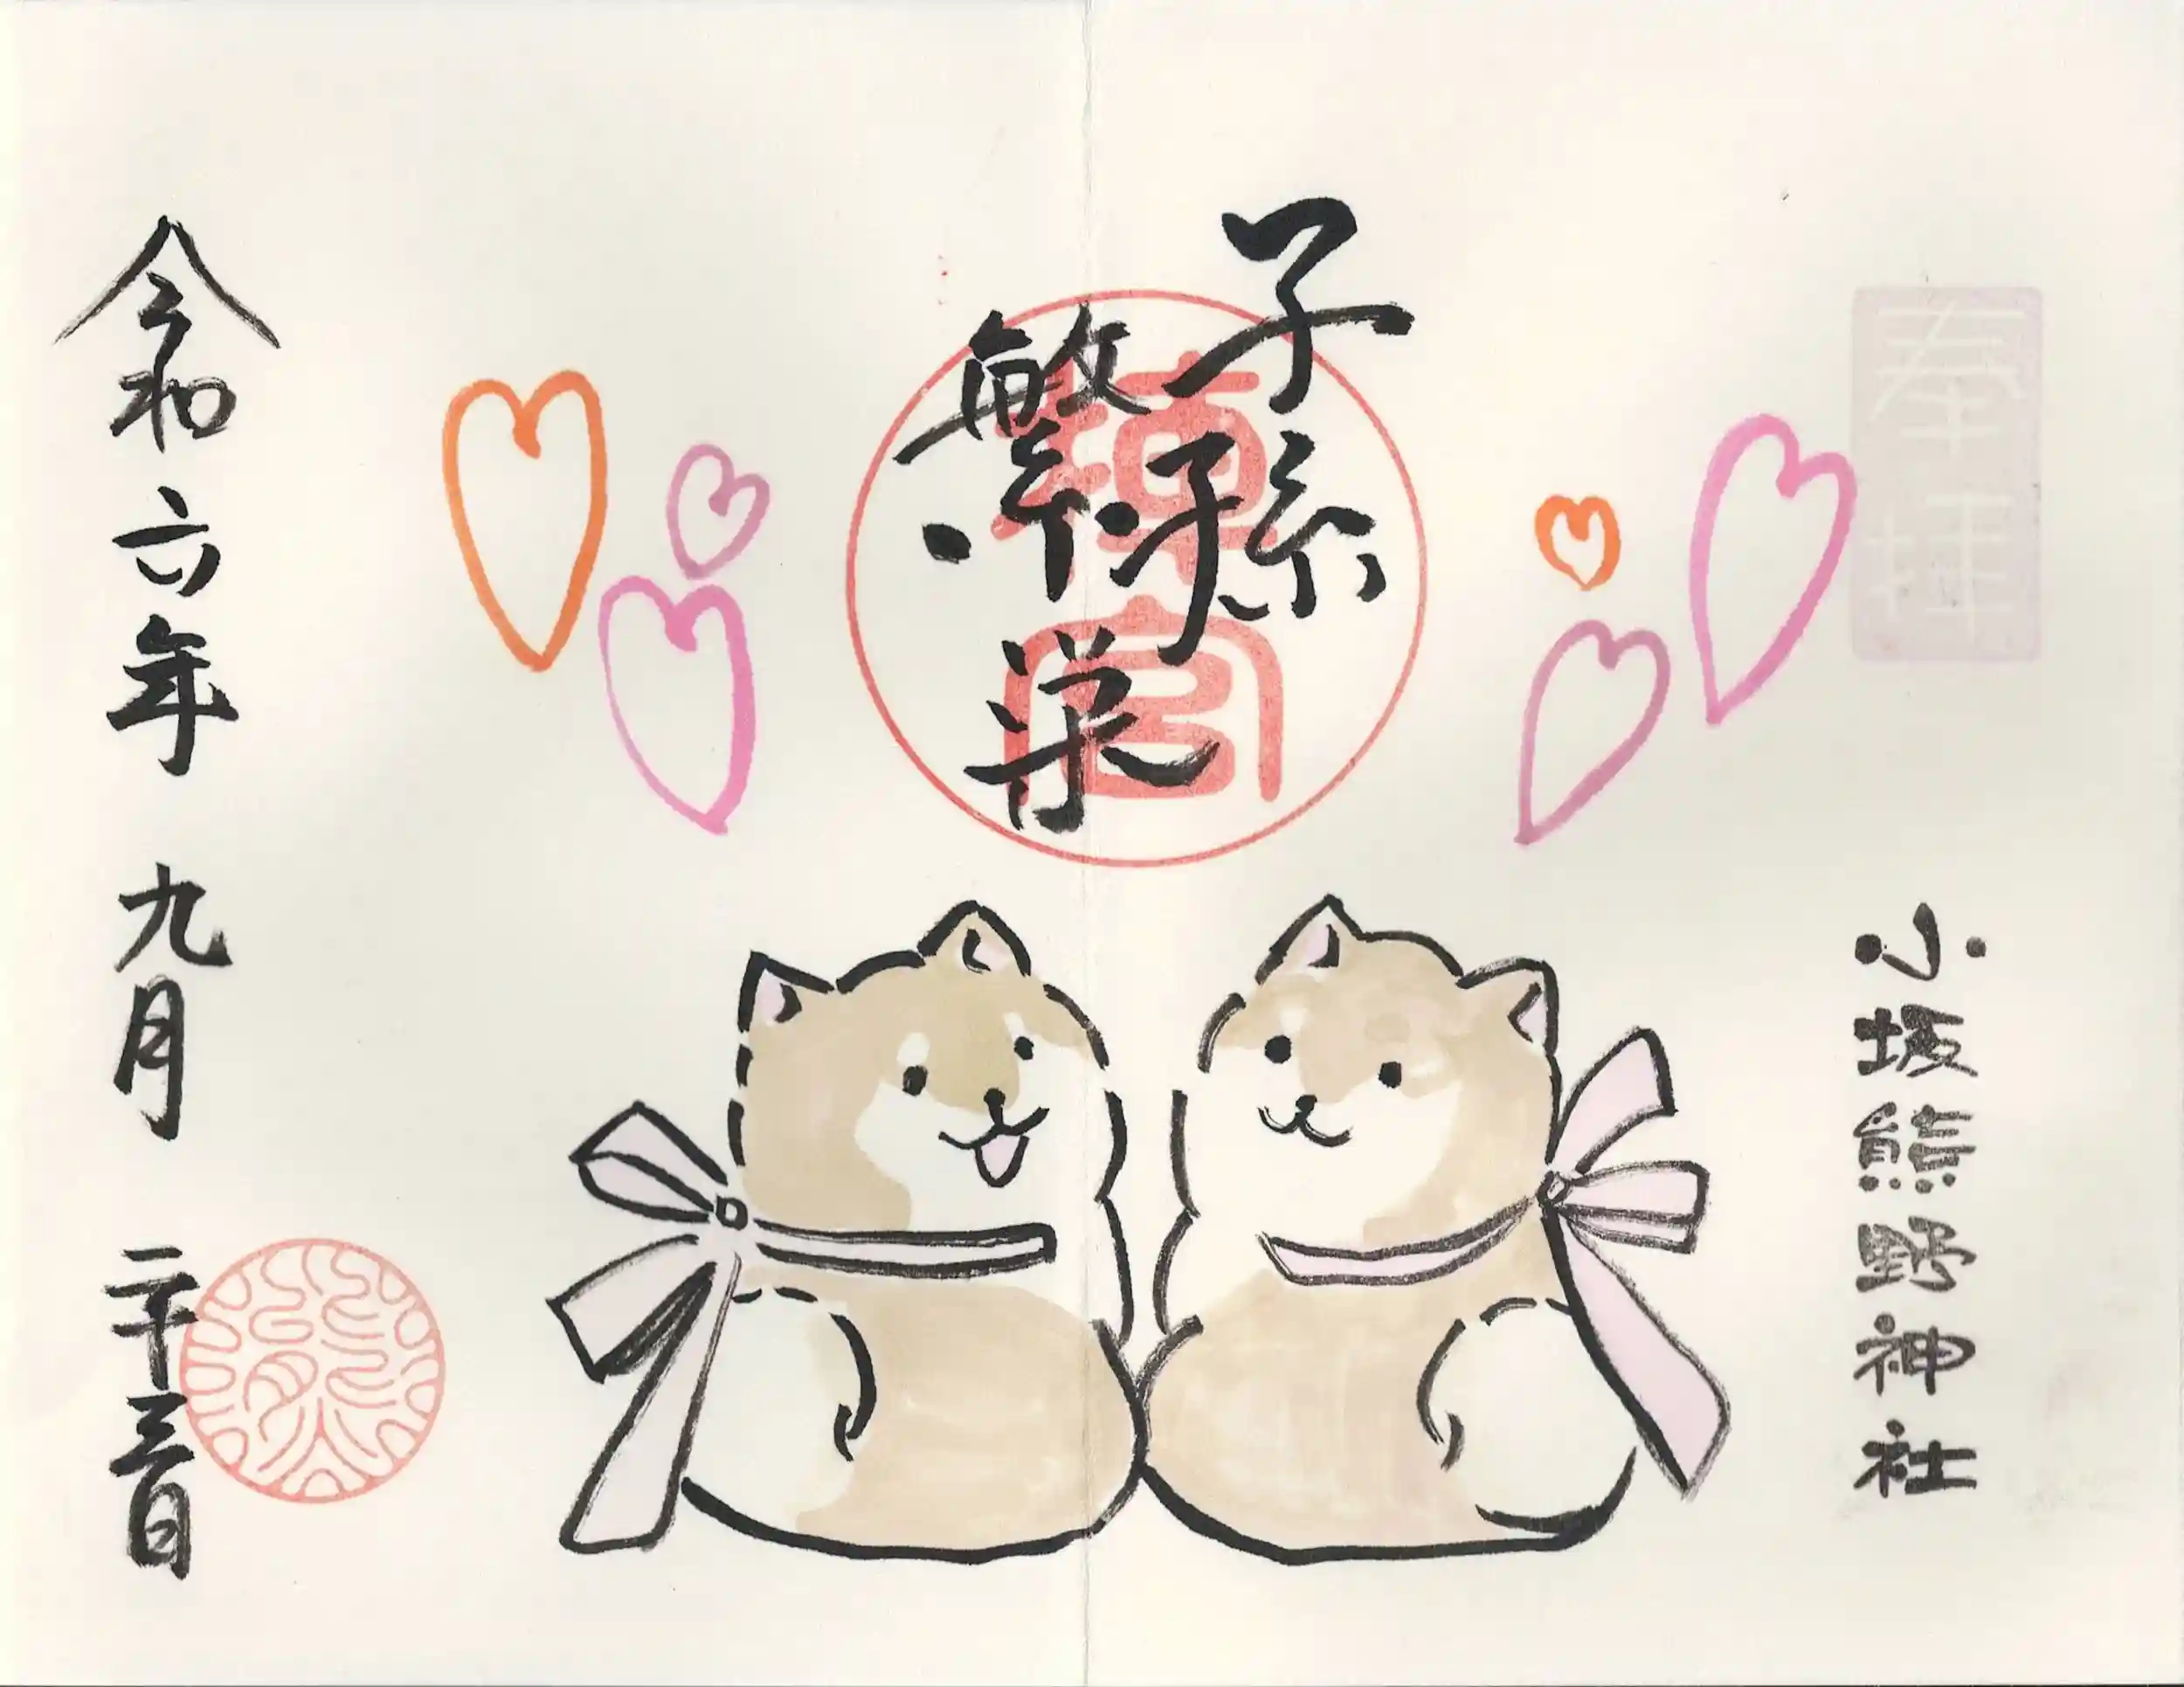 奉拝
小坂熊野神社
子孫
繁栄
令和六年 九月 二十三日